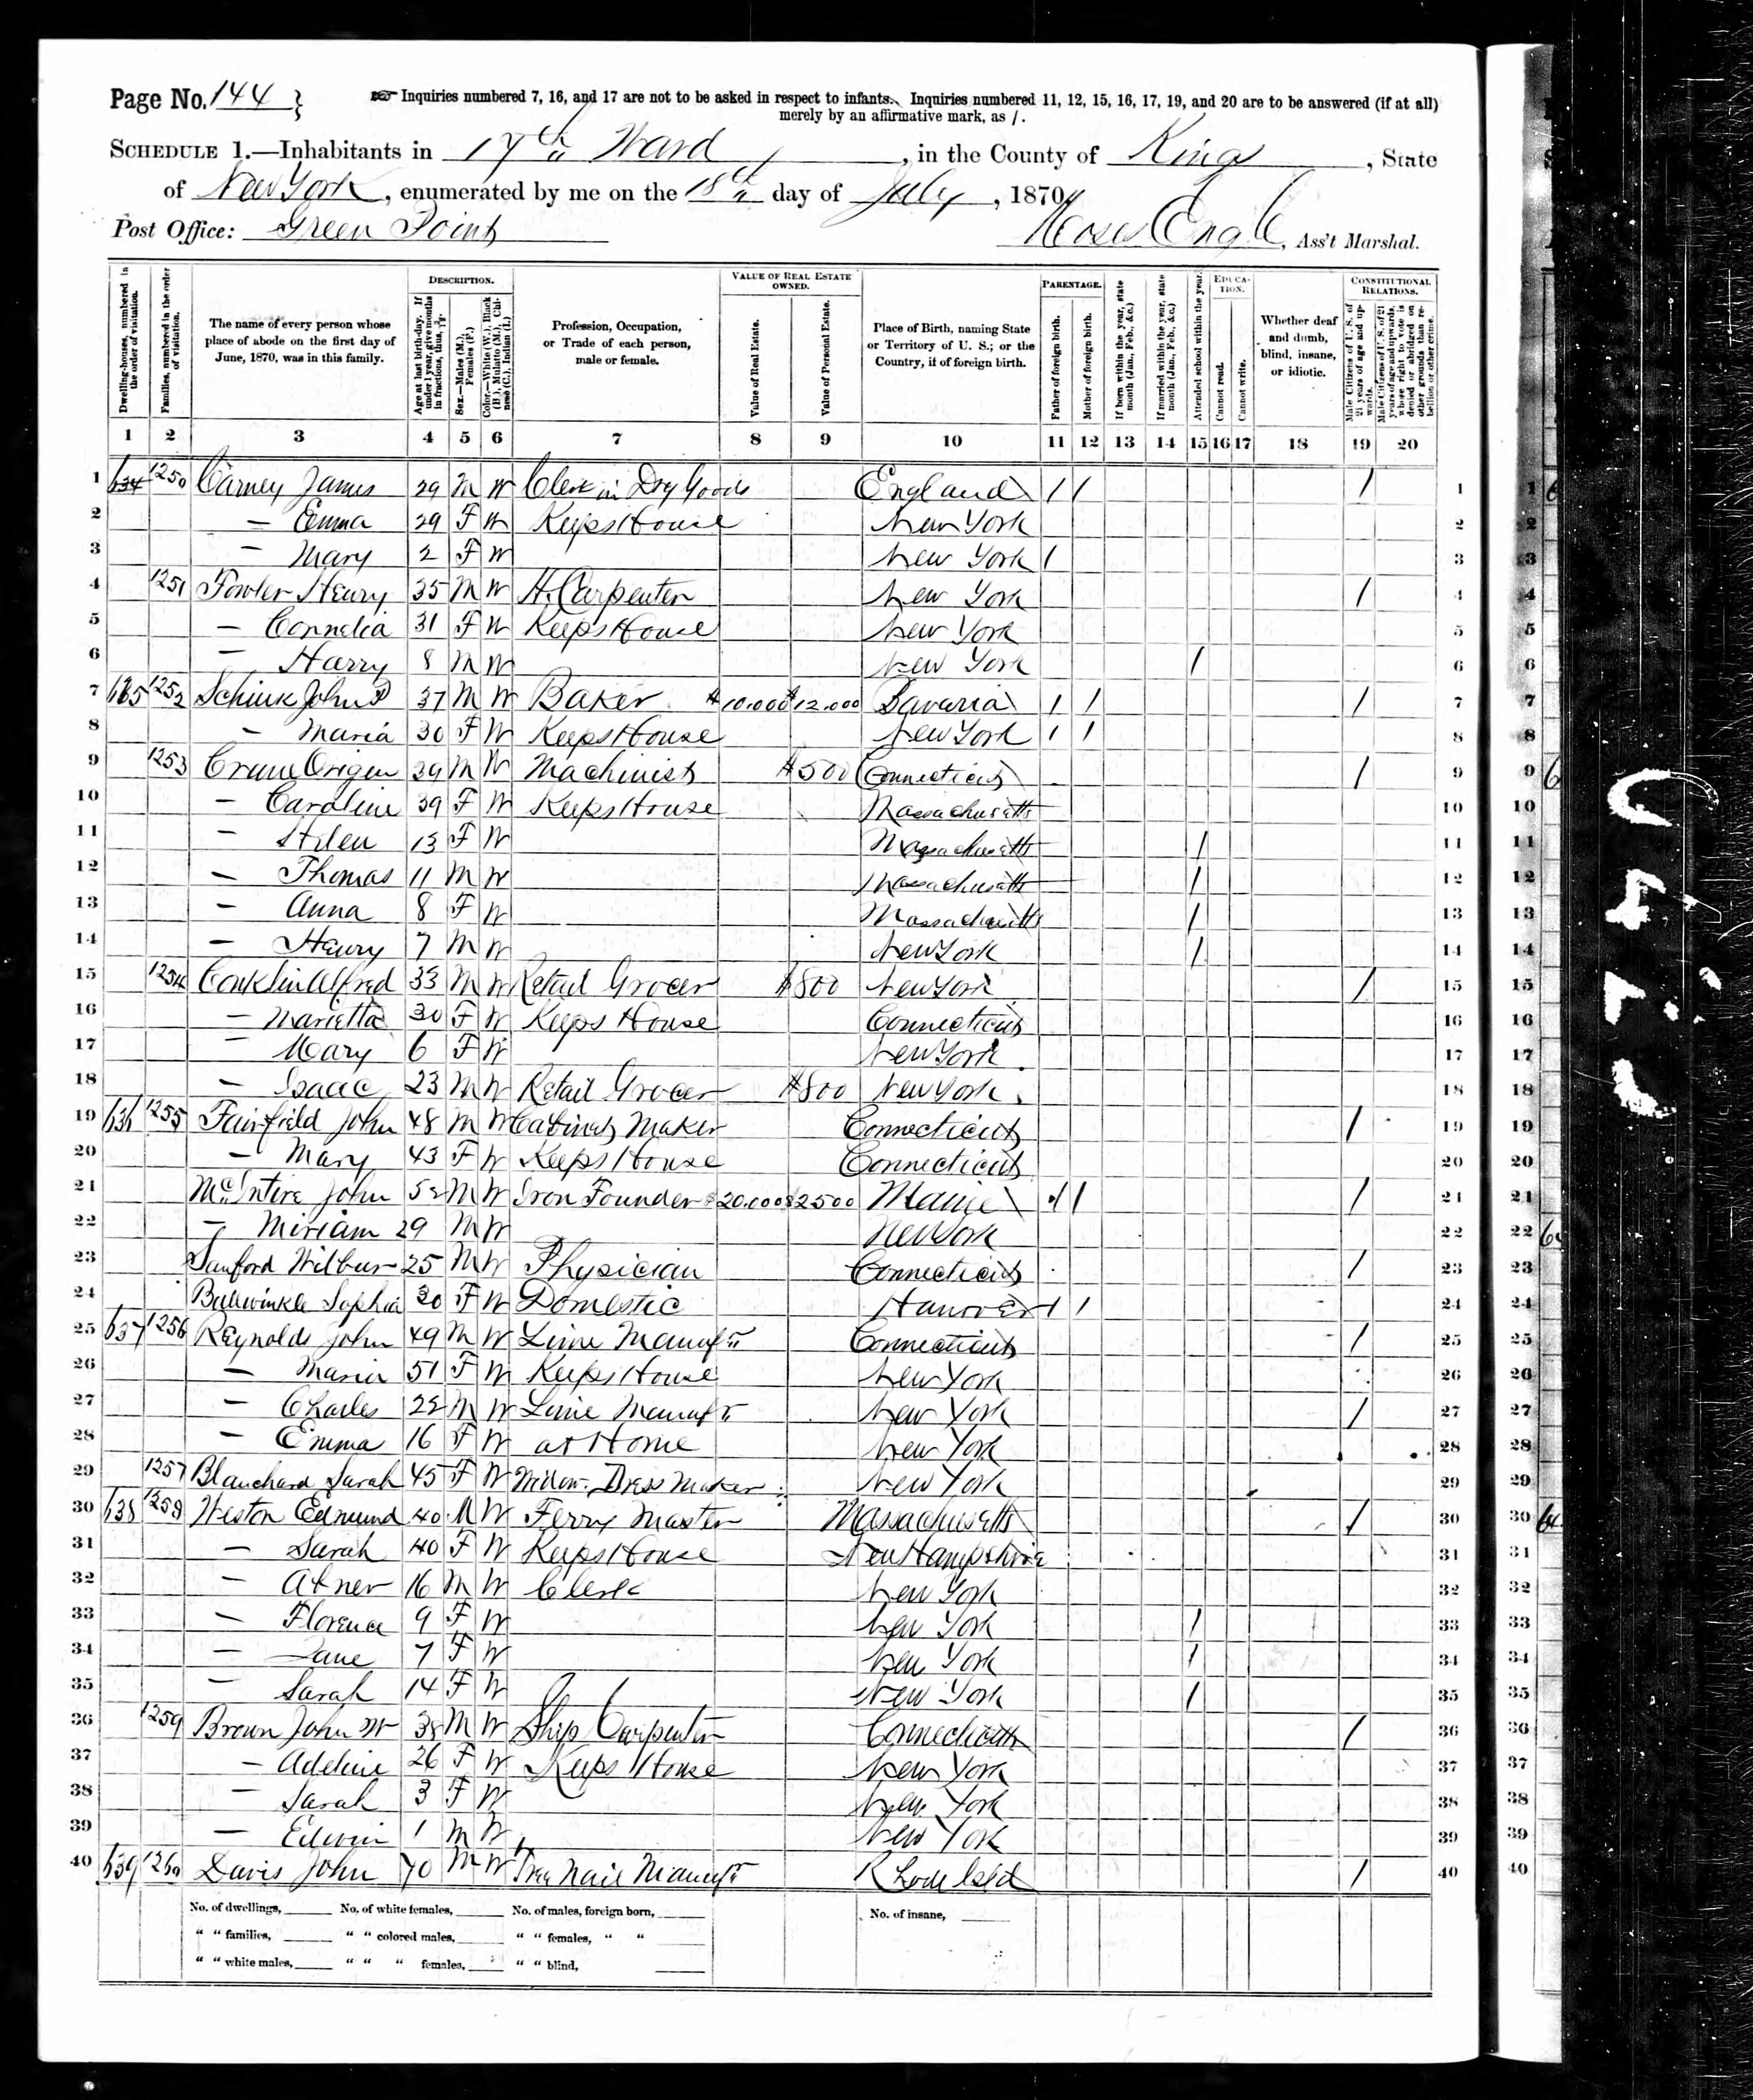 Page No. 144
Inquiries numbered 7, 16, and 17 are not to be asked in respect to infants. Inquiries numbered 11, 12, 15, 16, 17, 19, and 20 are to be answered (if at all)
merely by an affirmative mark, as /.
SCHEDULE 1.—Inhabitants in 17th Ward, in the County of Kings, State
of New York, enumerated by me on the 18th day of July, 1870
Post Office: Green Point Moses Engle, Ass't Marshal.
DESCRIPTION. VALUE OF REAL ESTATE OWNED. PARENTAGE. EDUCATION. CONSTITUTIONAL RELATIONS.
Dwelling-houses, numbered in the order of visitation.
Families, numbered in the order of visitation.
The name of every person whose place of abode on the first day of June, 1870, was in this family.
Age at last birth-day. If under 1 year, give months in fractions, thus, 3/12.
Sex.—Males (M.), Females (F.)
Color.—White (W.), Black (B.), Mulatto (M.), Chinese (C.), Indian (I.)
Profession, Occupation, or Trade of each person, male or female.
Value of Real Estate.
Value of Personal Estate.
Place of Birth, naming State or Territory of U. S.; or the Country, if of foreign birth.
Father of foreign birth.
Mother of foreign birth.
If born within the year, state month (Jan., Feb., &c.)
If married within the year, state month (Jan., Feb., &c.)
Attended school within the year.
Cannot read.
Cannot write.
Whether deaf and dumb, blind, insane, or idiotic.
Male Citizens of U. S. of 21 years of age and upwards.
Male Citizens of U. S. of 21 years of age and upwards, where right to vote is denied or abridged on other grounds than rebellion or other crime.
1 2 3 4 5 6 7 8 9 10 11 12 13 14 15 16 17 18 19 20
1 634 1250 Carney James 29 M W Clerk in Dry Goods England / / / 1
2 — Emma 29 F W Keeps House New York 2
3 — Mary 2 F W New York / 3
4 1251 Fowler Henry 35 M W H. Carpenter New York / 4
5 — Cornelia 31 F W Keeps House New York 5
6 — Harry 8 M W New York / 6
7 635 1252 Schink John P 37 M W Baker $10.000 $12.000 Bavaria / / / 7
8 — Maria 30 F W Keeps House New York / / 8
9 1253 Crane Origen 39 M W Machinist $500 Connecticut / 9
10 — Caroline 39 F W Keeps House Massachusetts 10
11 — Helen 13 F W Massachusetts / 11
12 — Thomas 11 M W Massachusetts / 12
13 — Anna 8 F W Massachusetts / 13
14 — Henry 7 M W New York / 14
15 1254 Conklin Alfred 33 M W Retail Grocer $800 New York / 15
16 — Marietta 30 F W Keeps House Connecticut 16
17 — Mary 6 F W New York 17
18 — Isaac 23 M W Retail Grocer $800 New York 18
19 636 1255 Fairfield John 48 M W Cabinet Maker Connecticut / 19
20 — Mary 43 F W Keeps House Connecticut 20
21 McIntire John 52 M W Iron Founder $20.000 $2500 Maine / / / 21
22 — Miriam 29 M W New York 22
23 Sanford Wilbur 25 M W Physician Connecticut / 23
24 Sophia 20 F W Domestic Hanover / / 24
25 637 1256 Reynolds John 49 M W Lime Manuftr Connecticut / 25
26 — Maria 51 F W Keeps House New York 26
27 — Charles 22 M W Lime Manuftr New York / 27
28 — Emma 16 F W at Home New York 28
29 1257 Blanchard Sarah 45 F W Widow. Dress Maker New York 29
30 638 1258 Weston Edmund 40 M W Ferry Master Massachusetts / 30
31 — Sarah 40 F W Keeps House New Hampshire 31
32 — Abner 16 M W Clerk New York 32
33 — Florence 9 F W New York / 33
34 — Jane 7 F W New York / 34
35 — Sarah 14 F W New York / 35
36 1259 Brown John W 38 M W Ship Carpenter Connecticut / 36
37 — Adeline 26 F W Keeps House New York 37
38 — Sarah 3 F W New York 38
39 — Edwin 1 M W New York 39
40 639 1260 Davis John 70 M W Tree Nail Manuftr Rhode Isld / 40
No. of dwellings, No. of white females, No. of males, foreign born, No. of insane,
" " families, " " colored males, " " females, " "
" " white males, " " " females, " " blind,